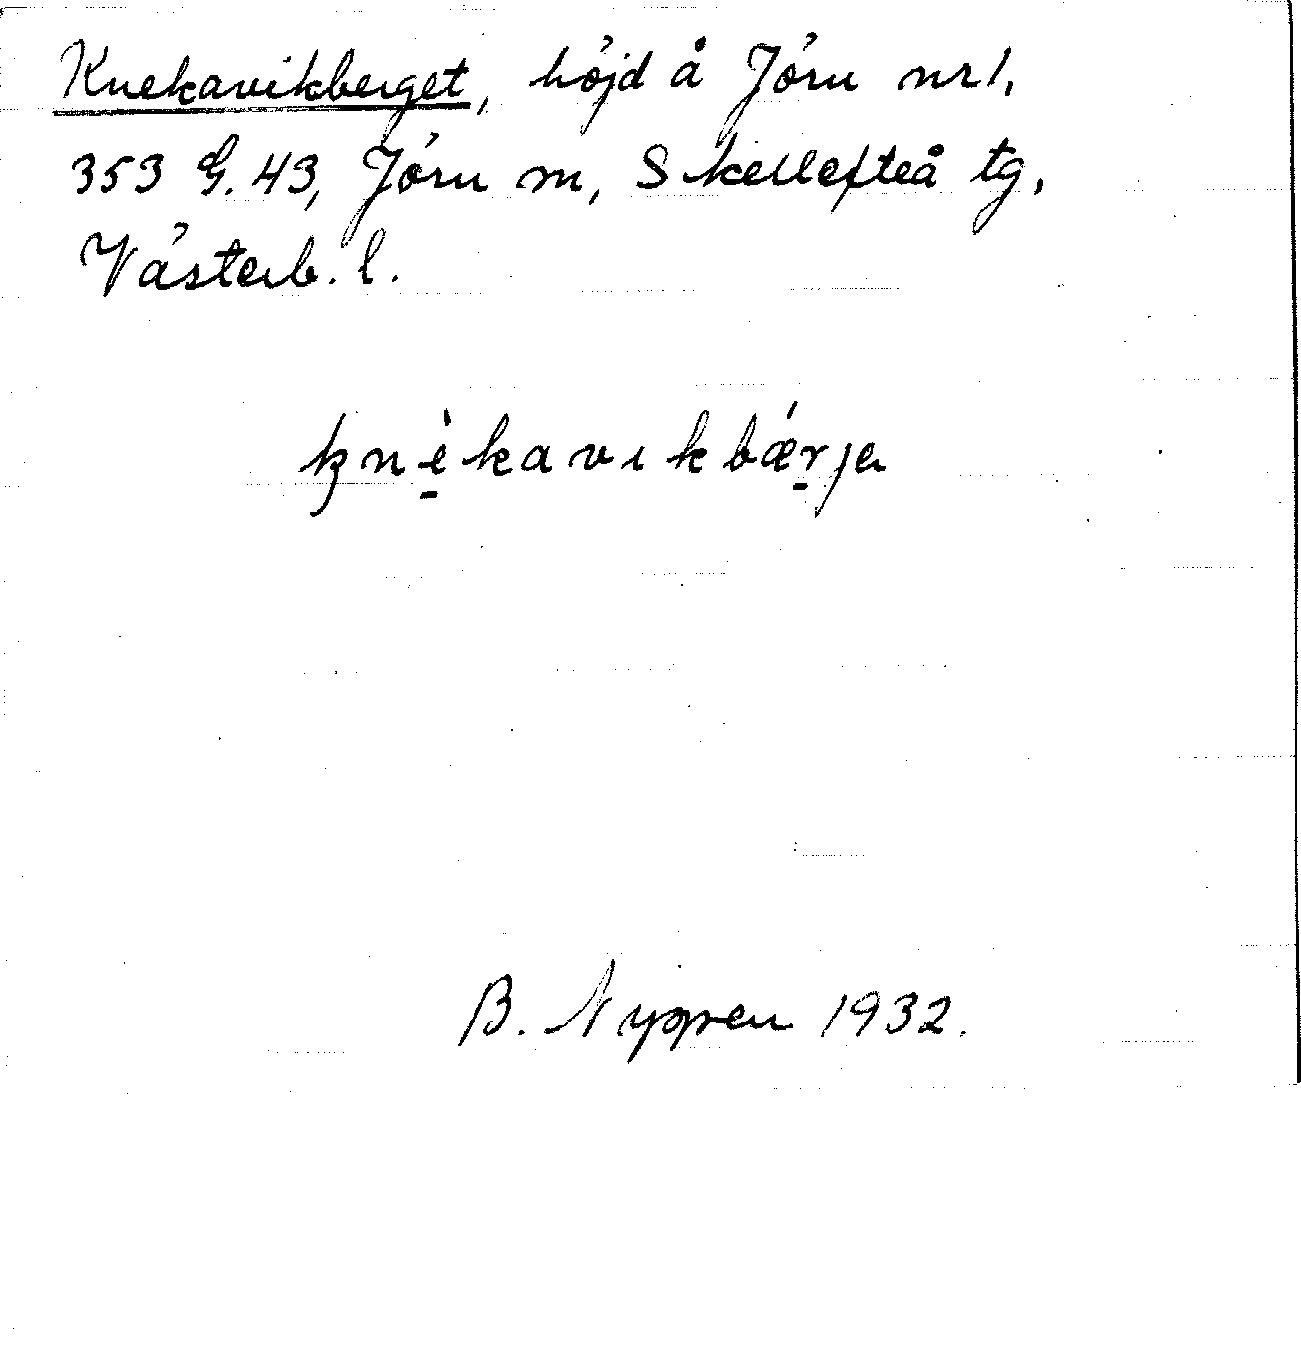 Knekavikberget, höjd å Jörn nr 1,
353 G. 43, Jörn m, Skellefteå tg,
Västerb. l.
knèkavıkbǽrjа
B. Nygren 1932.